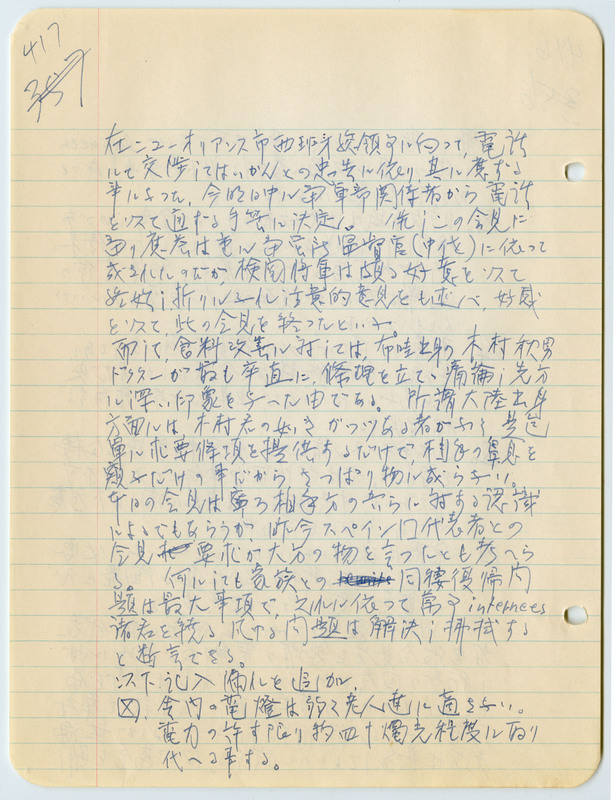 417
在ニューオリアンス市西班牙総領事に向つて、電話
にて交渉してはいかんとの忠告に依り、其に應ずる
事になつた、今明日中に両軍部関係者から電話
を以て通ずる手筈に決定。 この会見に
應答は 監督官(中佐)に依つて
成されたのだが、検閲将軍は頗る好意を以て
始終 注意的意見をも述べ、好感
を以て、此の会見を終つたといふ。
而して、食料改善に対しては、布哇出身の木村秋男
ドクターが最も率直に、條理を立てゝ痛論し先方
に深い印象を与へた由である。 所謂大陸出身
方面には、木村君の如きガツツある者がなく
単に必要條項を提供するだけで、相手の鼻息を
窺ふだけの事だから、さつぱり物に成らない。
本日の会見は 相手方の に対する認識
によるでもあらうが、昨今スペイン国代表者との
会見 要求が大分の物を言つたとも考へら
る。 何にしても家族との 同棲復帰問
題は最大事項で、之れに依つて 等 internees
諸君を繞る、凡ゆる問題は解決し掃拭する
と断言できる。
以下記入漏れを追加、
舎内の電燈は弱く老人達に適さない。
電力の許す限り 四十燭光程度に取り
代へる事。